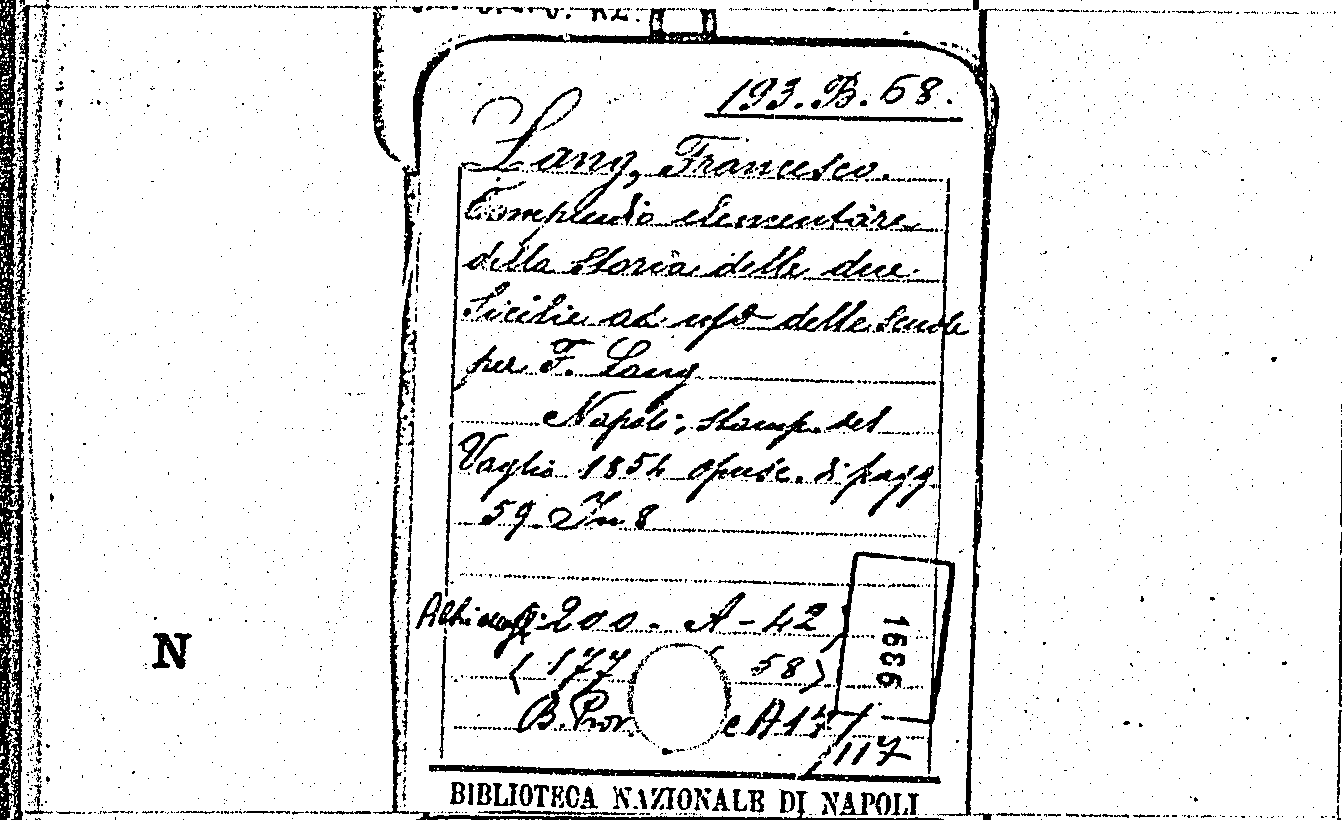 193.B.68.
Lang, Francesco.
Compendio elementare
della Storia delle due
Sicilie ad uso delle Scuole
per F. Lang
Napoli, stamp. del
Vaglio 1854 opusc. di pagg
59 In 8
200. A-42)
(177 58)
B. Prov. A 17
/117
1636
N
BIBLIOTECA NAZIONALE DI NAPOLI